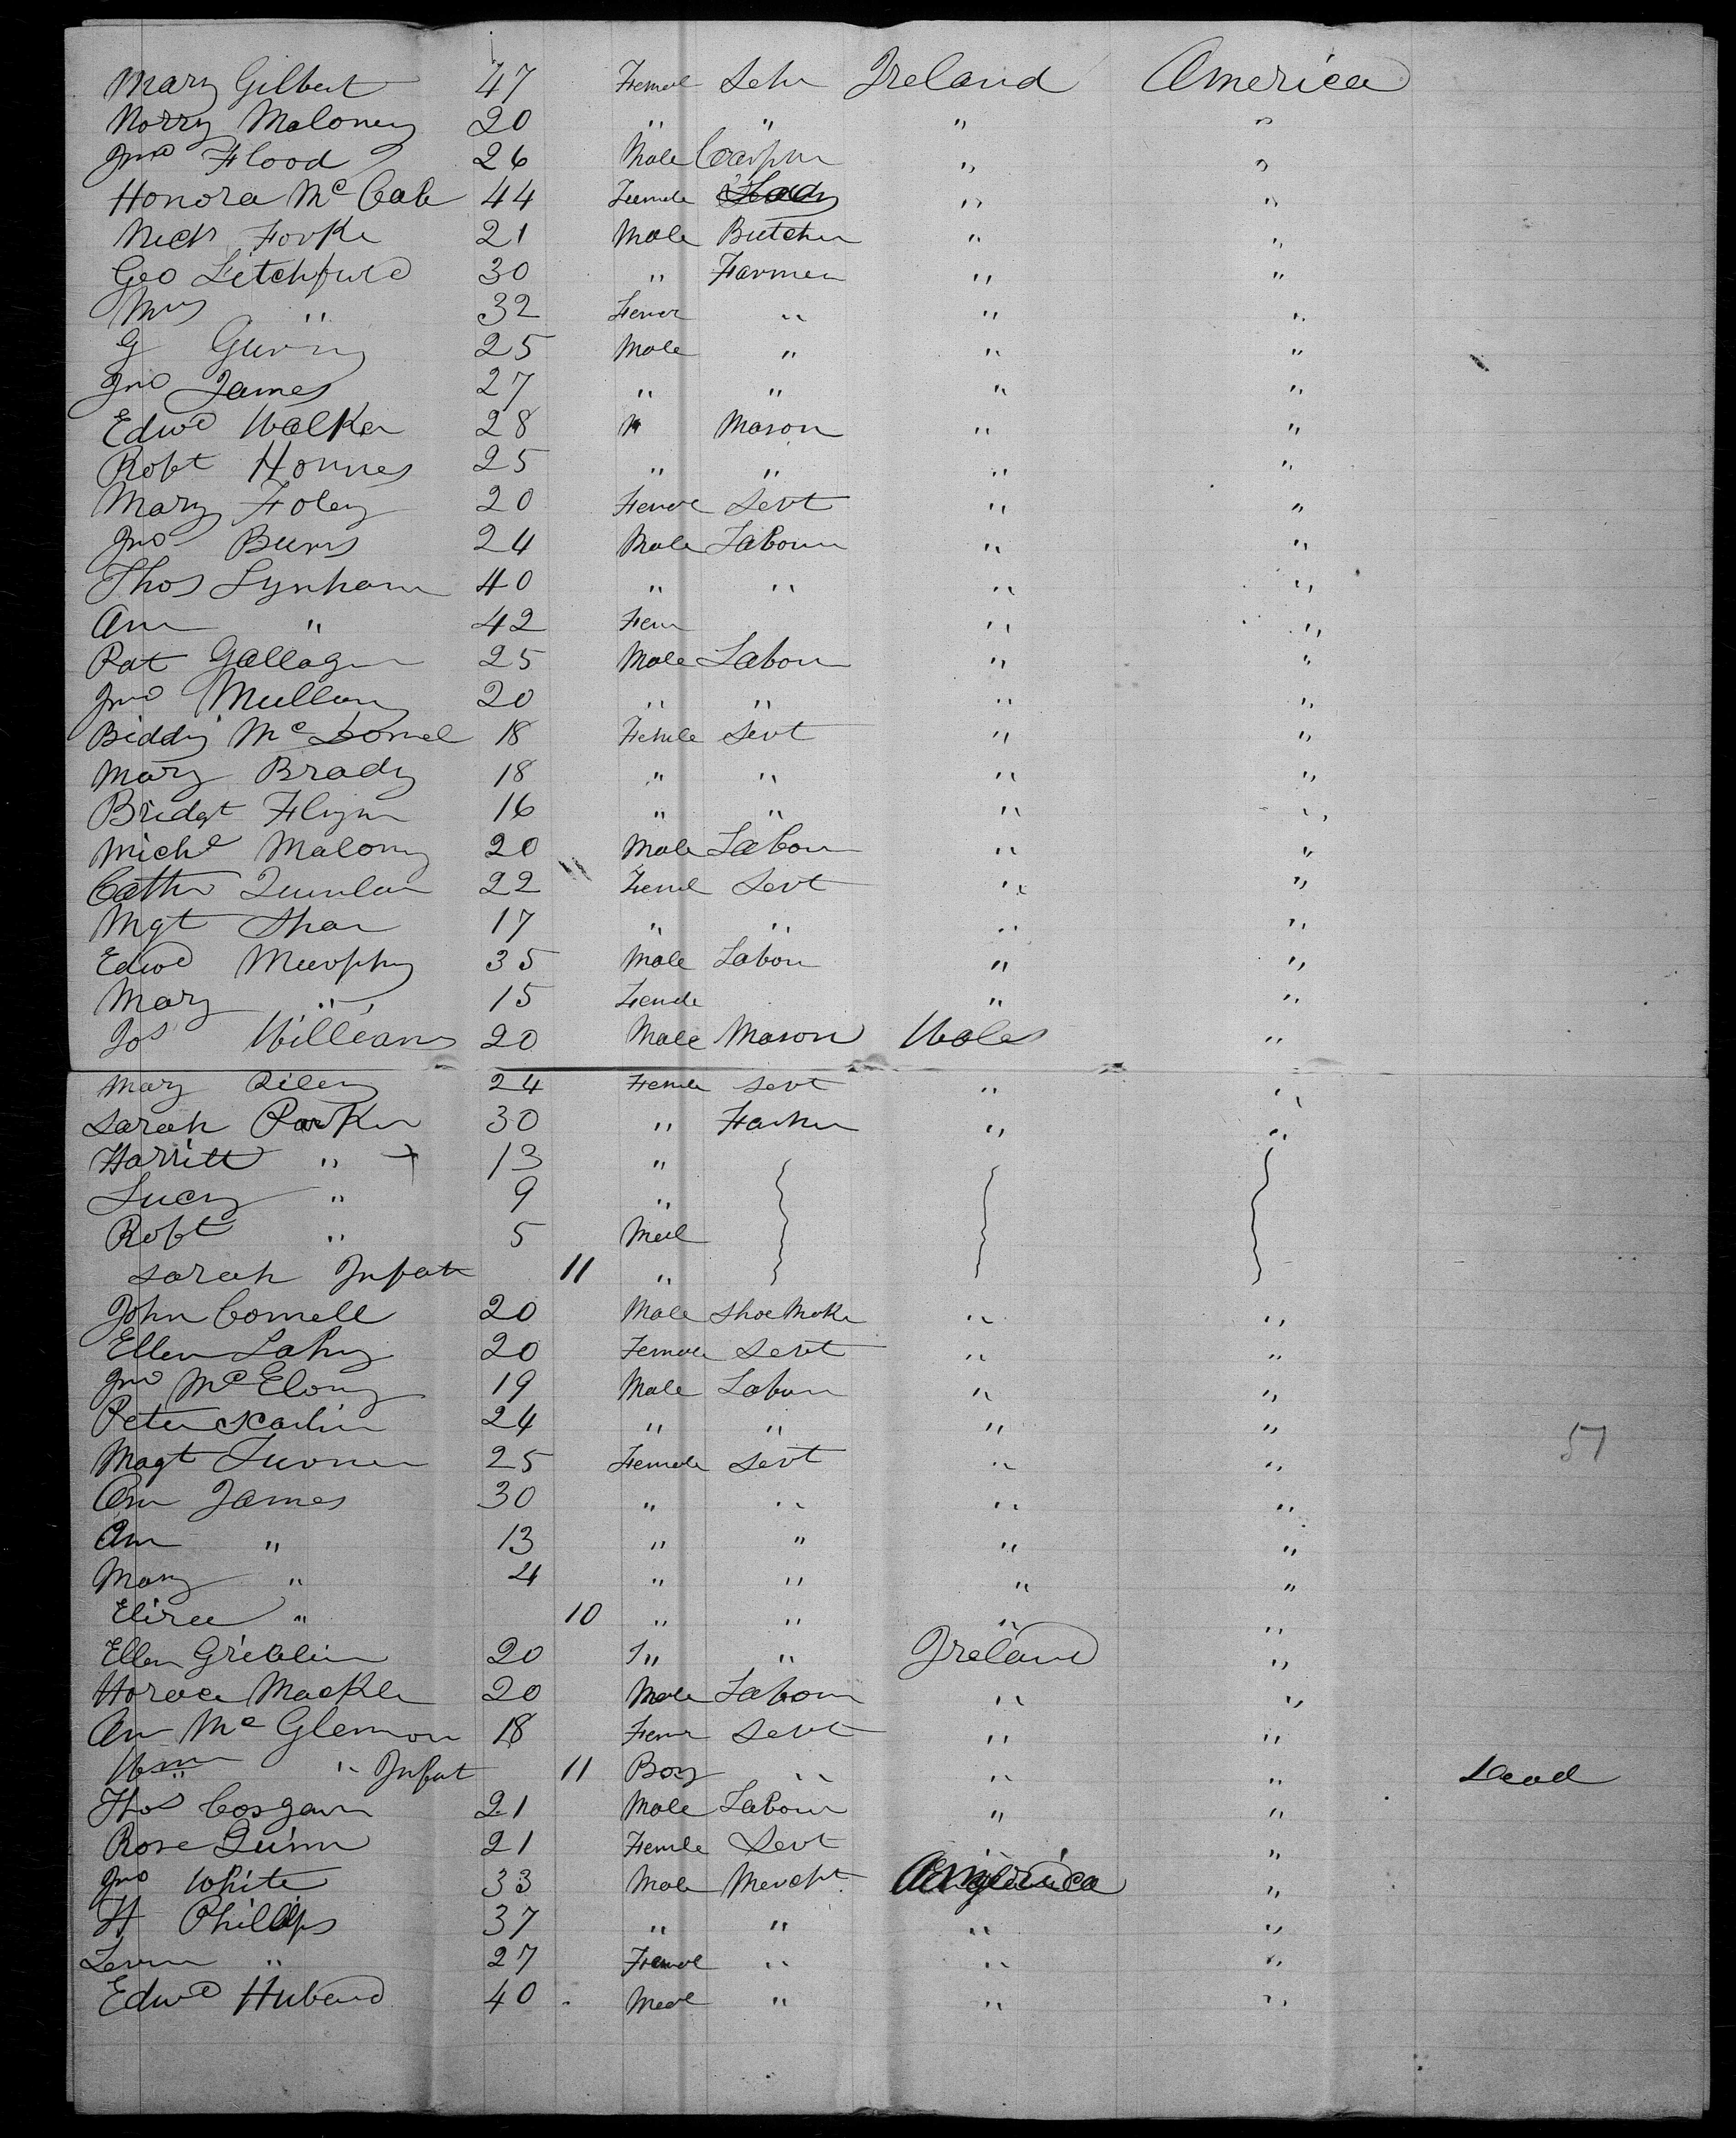 Mary Gilbert 47 Femal Ireland America
Norry Maloney 20 " " " "
Jno Flood 26 Male Carpnr " "
Honora McCabe 44 Female " "
Nichs Forke 21 Male Butcher " "
Geo Litchfield 30 " Farmer " "
Mrs " 32 Femal " " "
G 25 Male " " "
Jno James 27 " " " "
Edwd Walker 28 " Mason " "
Robt 25 " " " "
Mary Foley 20 Femal Servt " "
Jno Burns 24 Male Labour " "
Thos Lynham 40 " " " "
Ann " 42 Fem " "
Pat Gallagr 25 Male Labour " "
Jno Mullany 20 " " " "
Biddy McDonnel 18 Femle Servt " "
Mary Brady 18 " " " "
Bridgt Flynn 16 " " " "
Michl Malony 20 Male Labour " "
Cathn Quinlan 22 Feml Servt " "
Mgt Shan 17 " " " "
Edwd Murphy 35 Male Labour " "
Mary " 15 Female " "
Jos Williams 20 Male Mason Wales "
Mary Riley 24 Femle Servt " "
Sarah Parker 30 " " "
Harritt " + 13 "
Lucy " 9 "
Robt " 5 Mal
Sarah Infat 11 "
John Connell 20 Male Shoe Maker " "
Ellen Lahy 20 Female Servt " "
Jno 19 Male Labour " "
Peter 24 " " " "
Magt Turner 25 Female Servt " " 57
Ann James 30 " " " "
Ann " 13 " " " "
Mary " 4 " " " "
Eliza " 10 " " " "
Ellen 20 " " Ireland "
Horace Mackle 20 Male Labour " "
Ann McGlennon 18 Femr Servt " "
Wm " Infat 11 Boy " " " Dead
Thos Cosgavn 21 Male Labour " "
Rose Quinn 21 Femle Servt "
Jno White 33 Male Mercht America "
H Phillips 37 " " " "
" 27 Femal " " "
Edwd Huband 40 Male " " "